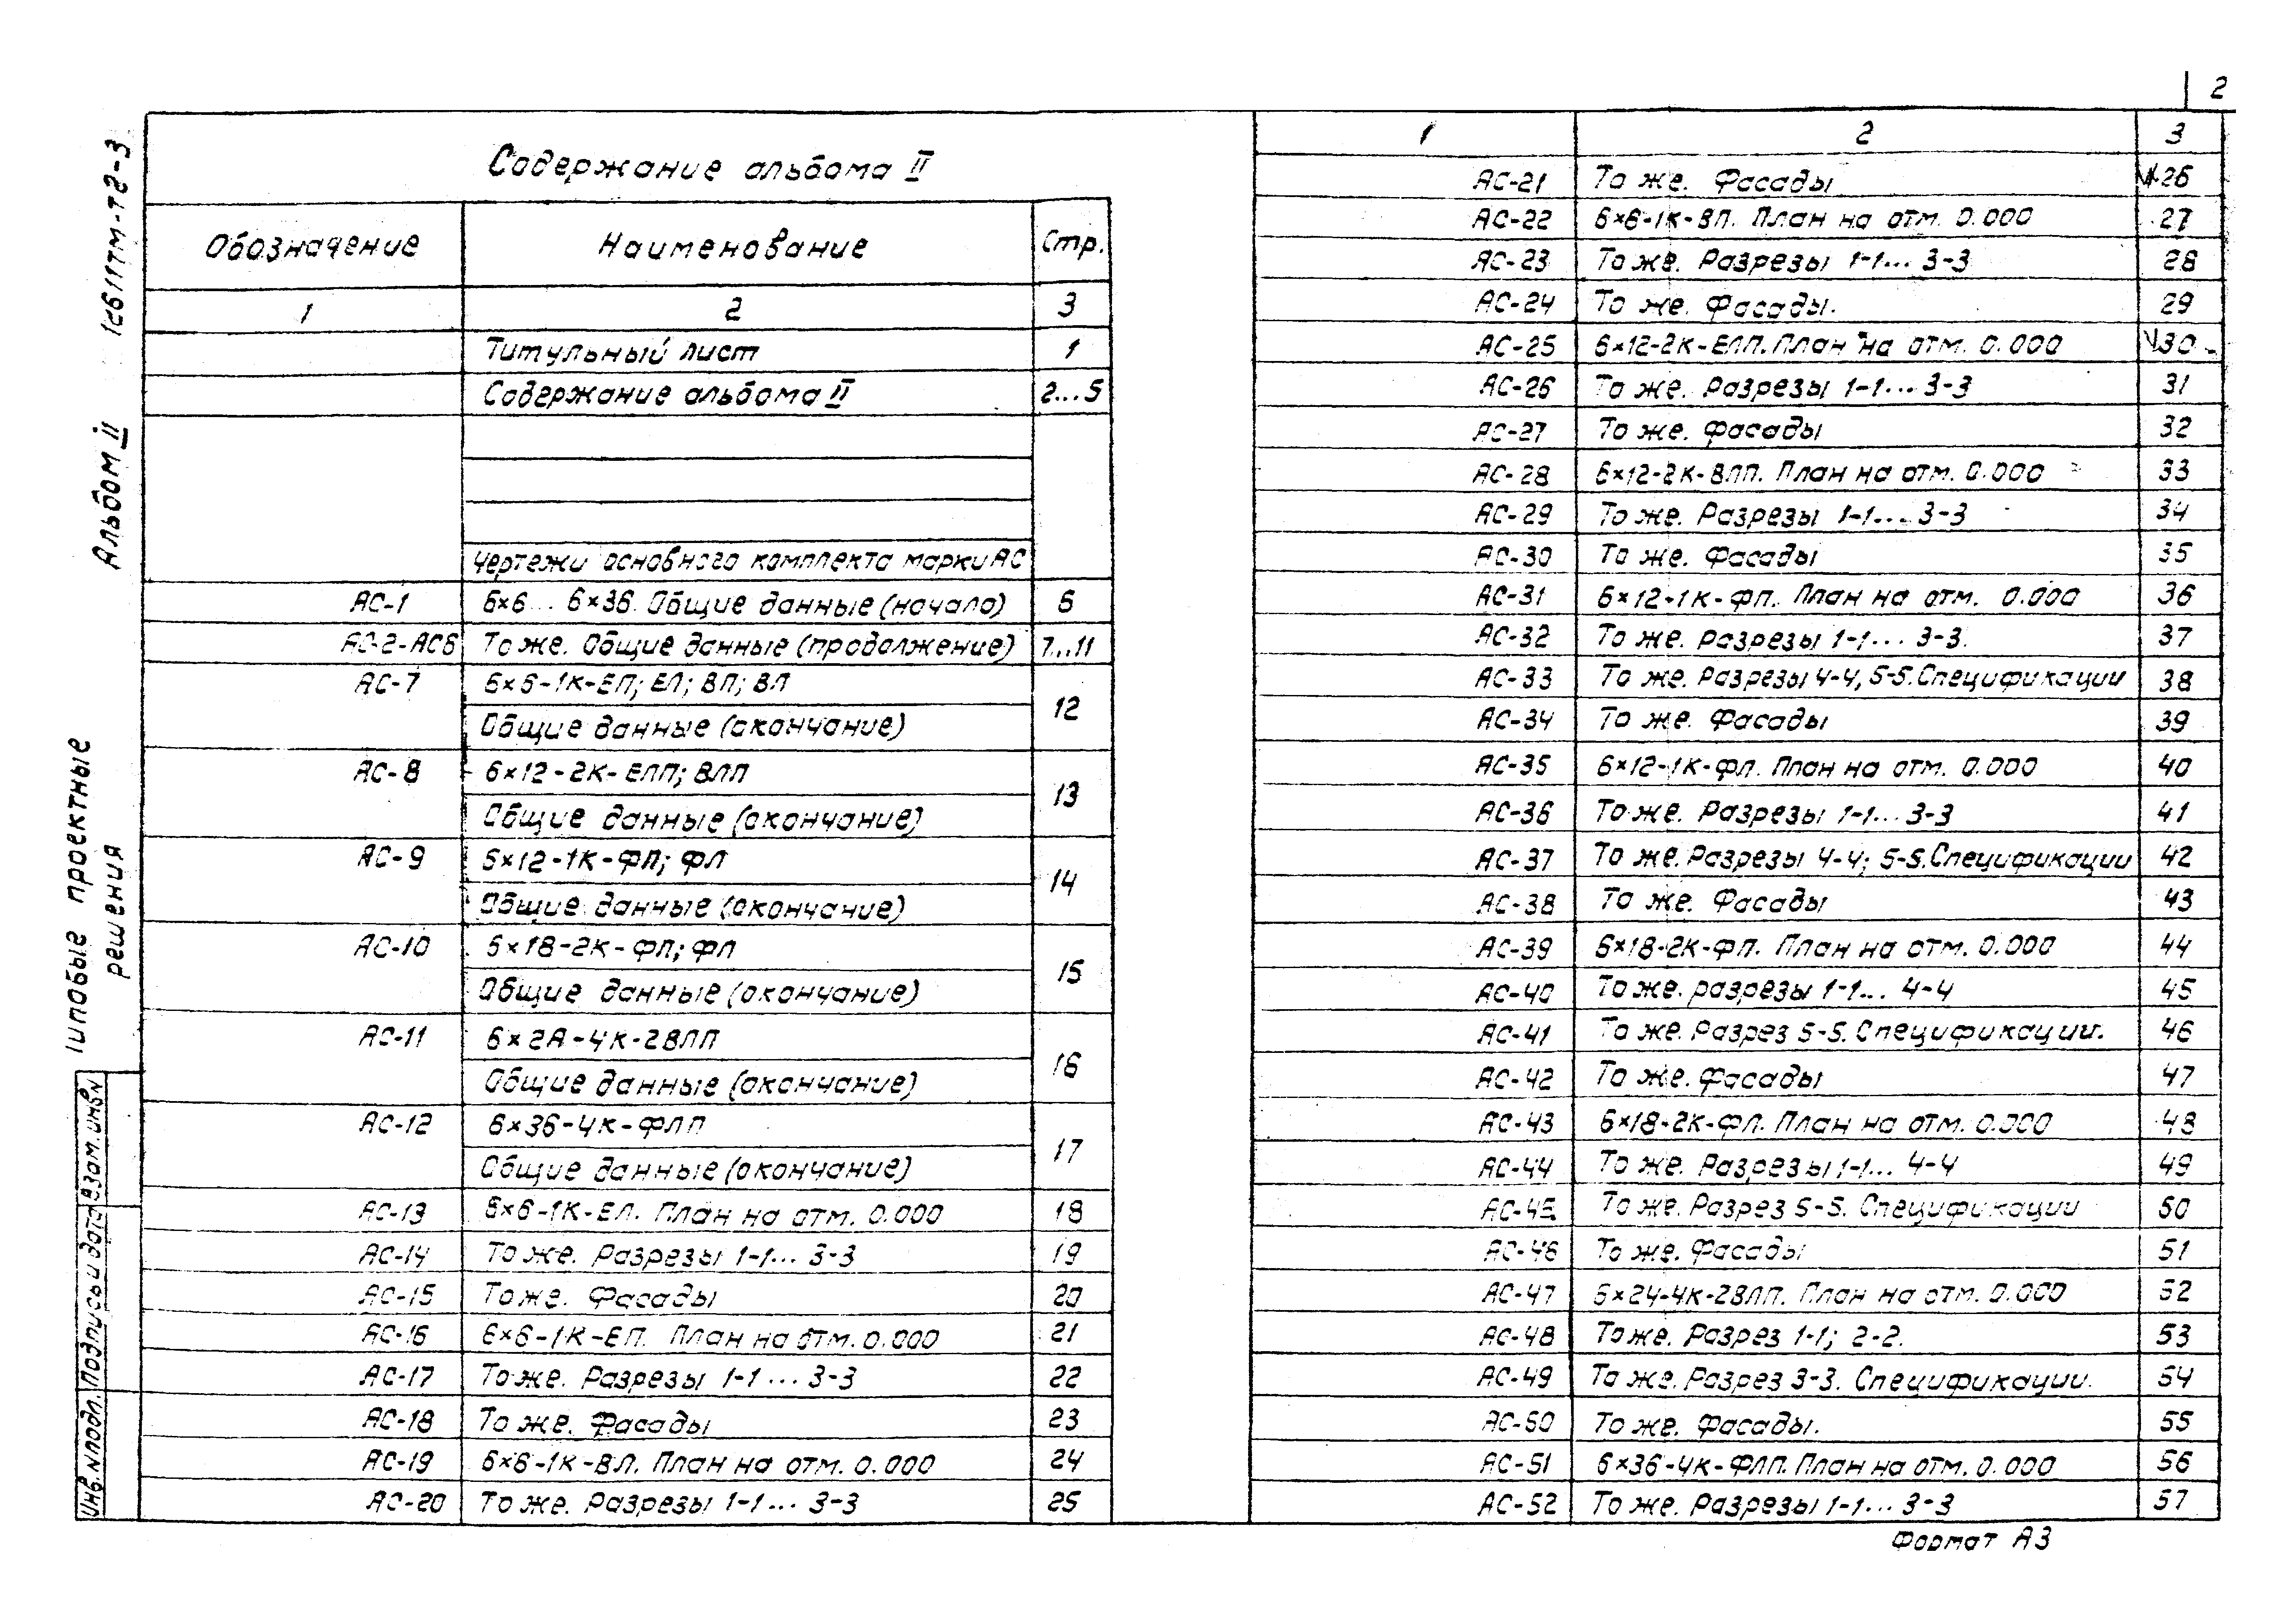 2
12611тм-т2-3
Альбом II
Типовые проектные
решения
Инв. № подл. Подпись и дата Взам. инв №
Содержание альбома II
Обозначение Наименование Стр.
1 2 3
Титульный лист 1
Содержание альбома II 2...5
Чертежи основного комплекта марки АС
АС-1 6×6... 6×36. Общие данные (начало) 6
АС-2-АС6 То же. Общие данные (продолжение) 7...11
АС-7 6×6-1К-ЕП; ЕЛ; ВП; ВЛ 12
Общие данные (окончание)
АС-8 6×12-2К-ЕЛП; ВЛП 13
Общие данные (окончание)
АС-9 6×12-1К-ФП; ФЛ 14
Общие данные (окончание)
АС-10 6×18-2К-ФП; ФЛ 15
Общие данные (окончание)
АС-11 6×24-4К-2ВЛП 16
Общие данные (окончание)
АС-12 6×36-4К-ФЛП 17
Общие данные (окончание)
АС-13 6×6-1К-ЕЛ. План на отм. 0.000 18
АС-14 То же. Разрезы 1-1... 3-3 19
АС-15 То же. Фасады 20
АС-16 6×6-1К-ЕП. План на отм. 0.000 21
АС-17 То же. Разрезы 1-1... 3-3 22
АС-18 То же. Фасады 23
АС-19 6×6-1К-ВЛ. План на отм. 0.000 24
АС-20 То же. Разрезы 1-1... 3-3 25
1 2 3
АС-21 То же. Фасады 26
АС-22 6×6-1К-ВП. План на отм. 0.000 27
АС-23 То же. Разрезы 1-1... 3-3 28
АС-24 То же. Фасады. 29
АС-25 6×12-2К-ЕЛП. План на отм. 0.000 30
АС-26 То же. Разрезы 1-1... 3-3 31
АС-27 То же. Фасады 32
АС-28 6×12-2К-ВЛП. План на отм. 0.000 33
АС-29 То же. Разрезы 1-1... 3-3 34
АС-30 То же. Фасады 35
АС-31 6×12-1К-ФП. План на отм. 0.000 36
АС-32 То же. Разрезы 1-1... 3-3. 37
АС-33 То же. Разрезы 4-4, 5-5. Спецификации 38
АС-34 То же. Фасады 39
АС-35 6×12-1К-ФЛ. План на отм. 0.000 40
АС-36 То же. Разрезы 1-1... 3-3 41
АС-37 То же. Разрезы 4-4; 5-5. Спецификации 42
АС-38 То же. Фасады 43
АС-39 6×18-2К-ФП. План на отм. 0.000 44
АС-40 То же. разрезы 1-1... 4-4 45
АС-41 То же. Разрез 5-5. Спецификации. 46
АС-42 То же. Фасады 47
АС-43 6×18-2К-ФЛ. План на отм. 0.000 48
АС-44 То же. Разрезы 1-1... 4-4 49
АС-45 То же. Разрез 5-5. Спецификации 50
АС-46 То же. Фасады 51
АС-47 6×24-4К-2ВЛП. План на отм. 0.000 52
АС-48 То же. Разрез 1-1; 2-2. 53
АС-49 То же. Разрез 3-3. Спецификации. 54
АС-50 То же. Фасады. 55
АС-51 6×36-4К-ФЛП. План на отм. 0.000 56
АС-52 То же. Разрезы 1-1... 3-3 57
Формат А3